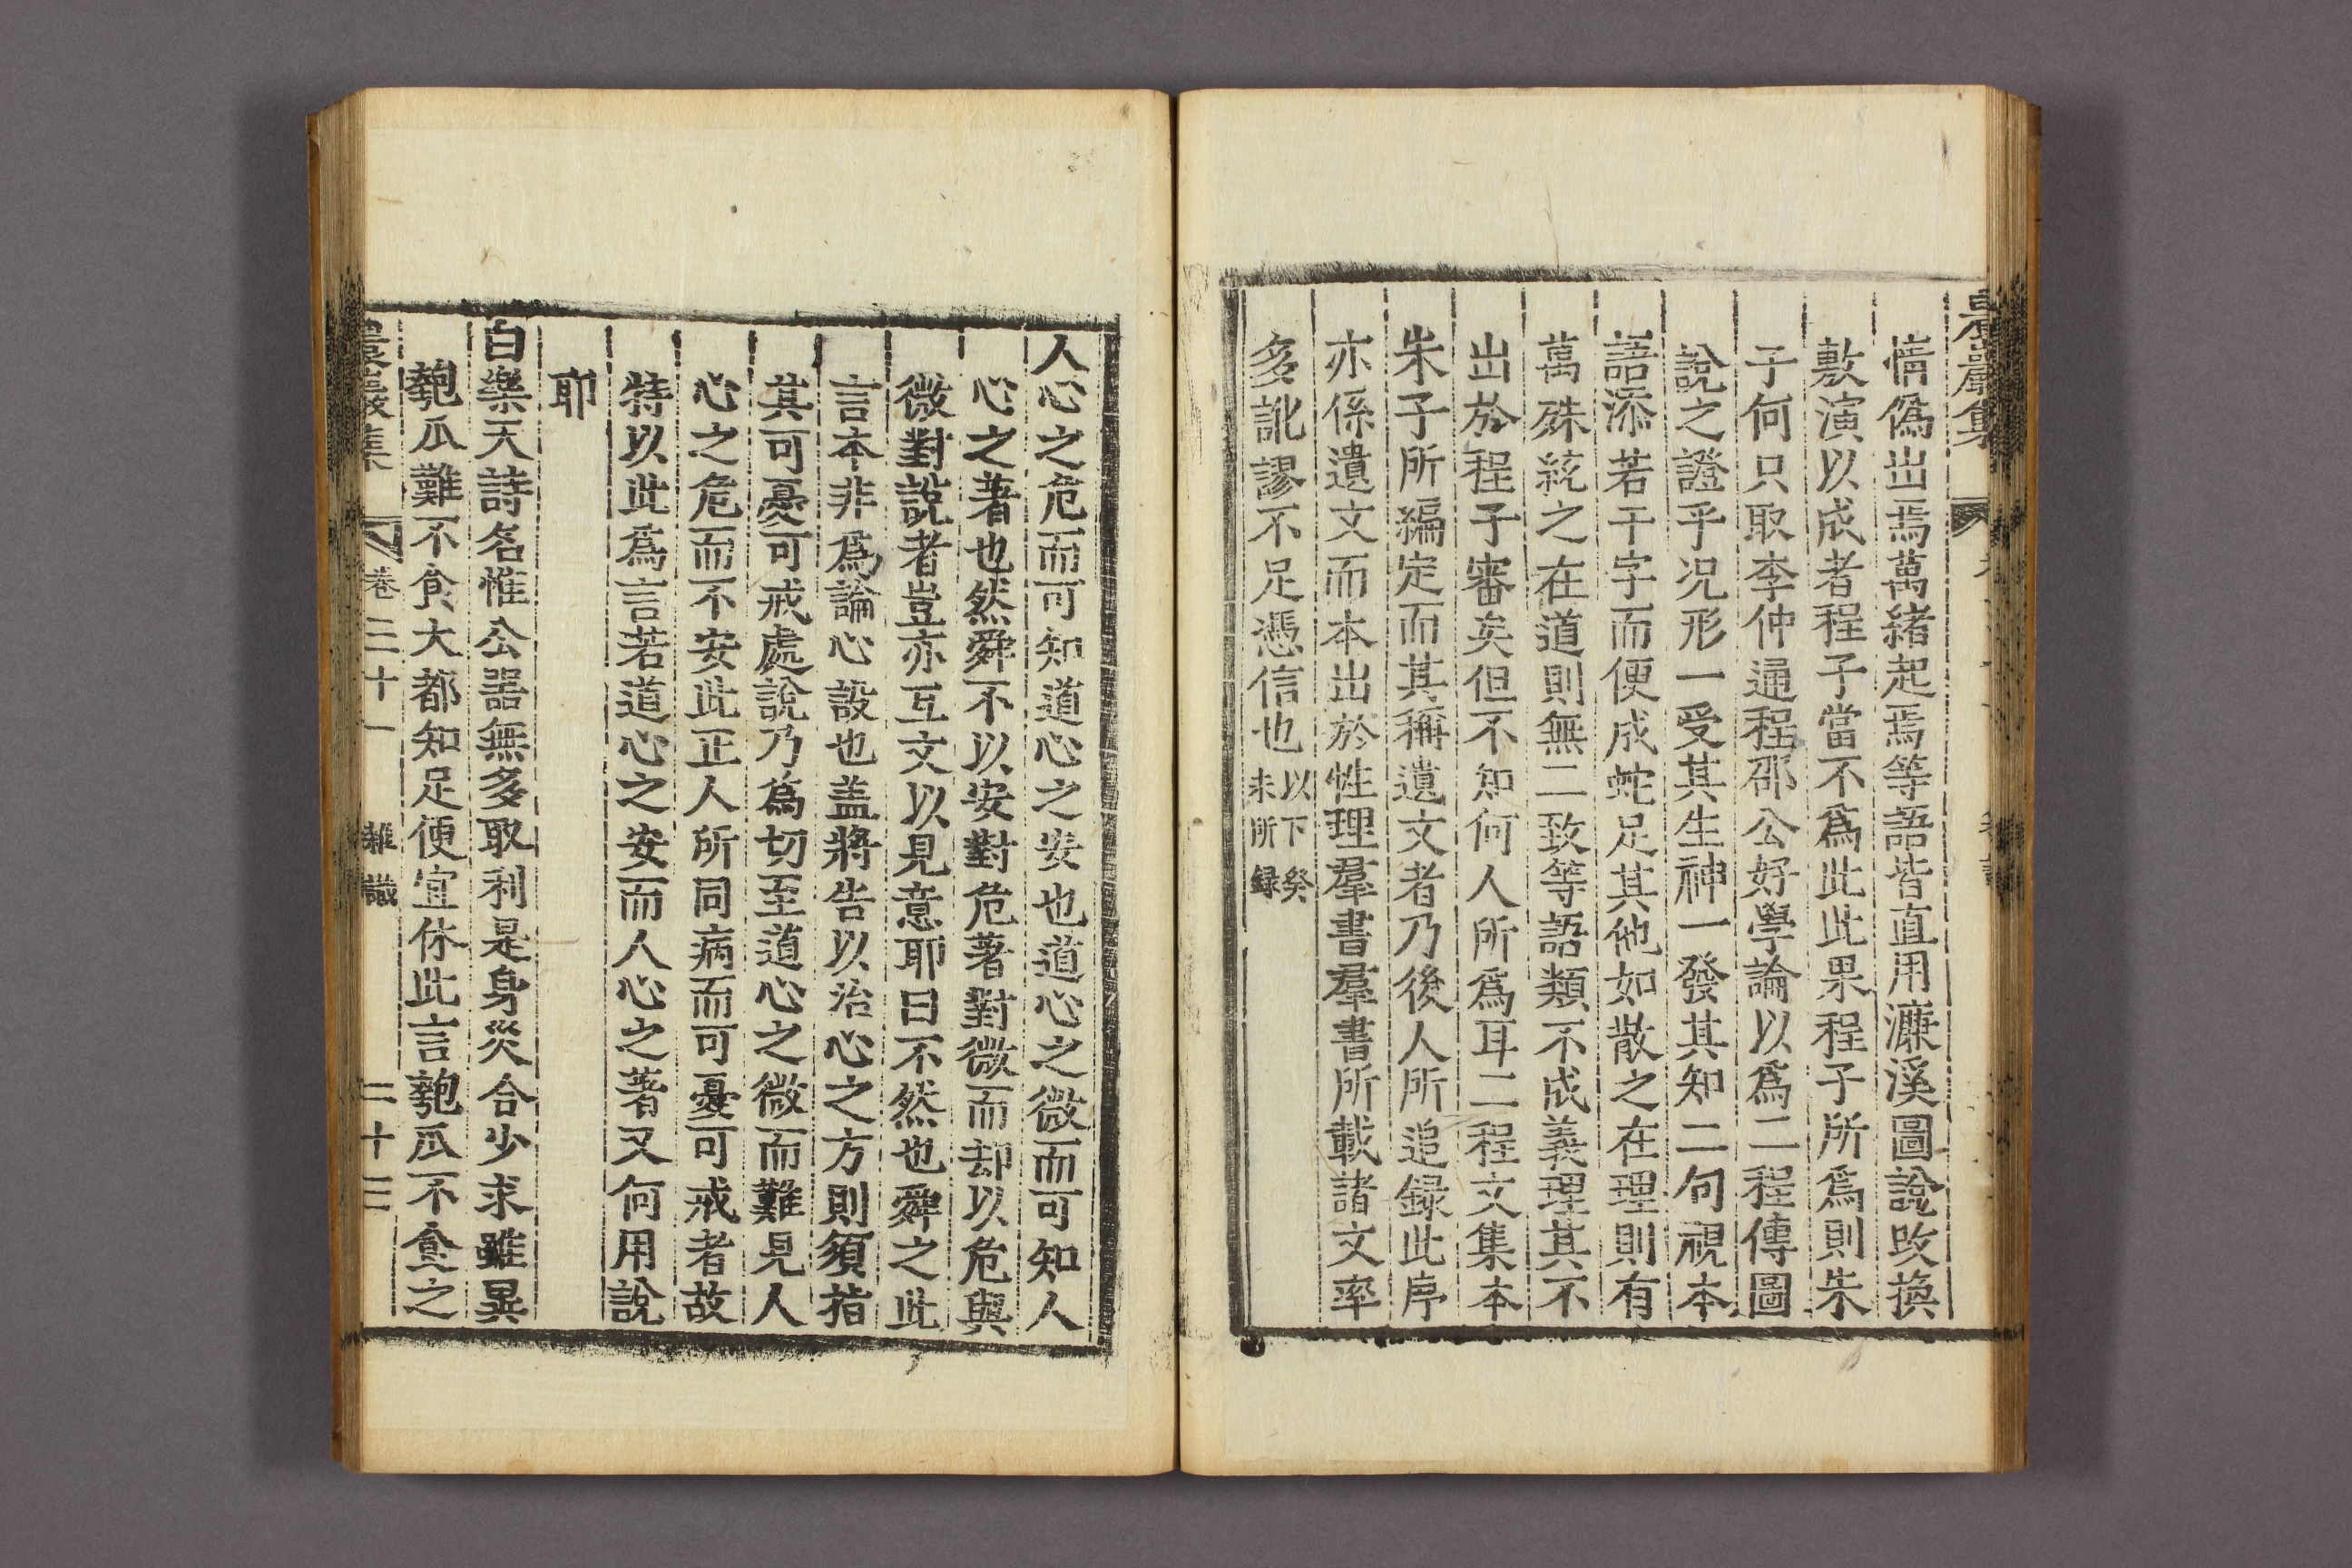 情僞出焉萬緖起焉等語皆直用濂溪圖說改換
敷演以成者程子當不爲此此果程子所爲則朱
子何只取李仲通程邵公好學論以爲二程傳圖
說之證乎况形一受其生神一發其知二句視本
語添若干字而便成蛇足其他如散之在理則有
萬殊統之在道則無二致等語類不成義理其不
出於程子審矣但不知何人所爲耳二程文集本
朱子所編定而其稱遺文者乃後人所追録此序
亦係遺文而本出於性理羣書羣書所載諸文率
多訛謬不足憑信也以下癸
未所録
人心之危而可知道心之安也道心之微而可知人
心之著也然舜不以安對危著對微而却以危與
微對說者豈亦互文以見意耶曰不然也舜之此
言本非爲論心設也盖將告以治心之方則須指
其可憂可戒處說乃爲切至道心之微而難見人
心之危而不安此正人所同病而可憂可戒者故
特以此爲言若道心之安而人心之著又何用說
耶
白樂天詩名惟公器無多取利是身災合少求雖異
匏瓜難不食大都知足便宜休此言匏瓜不食之
農巖集 卷三十一 雜識 二十三